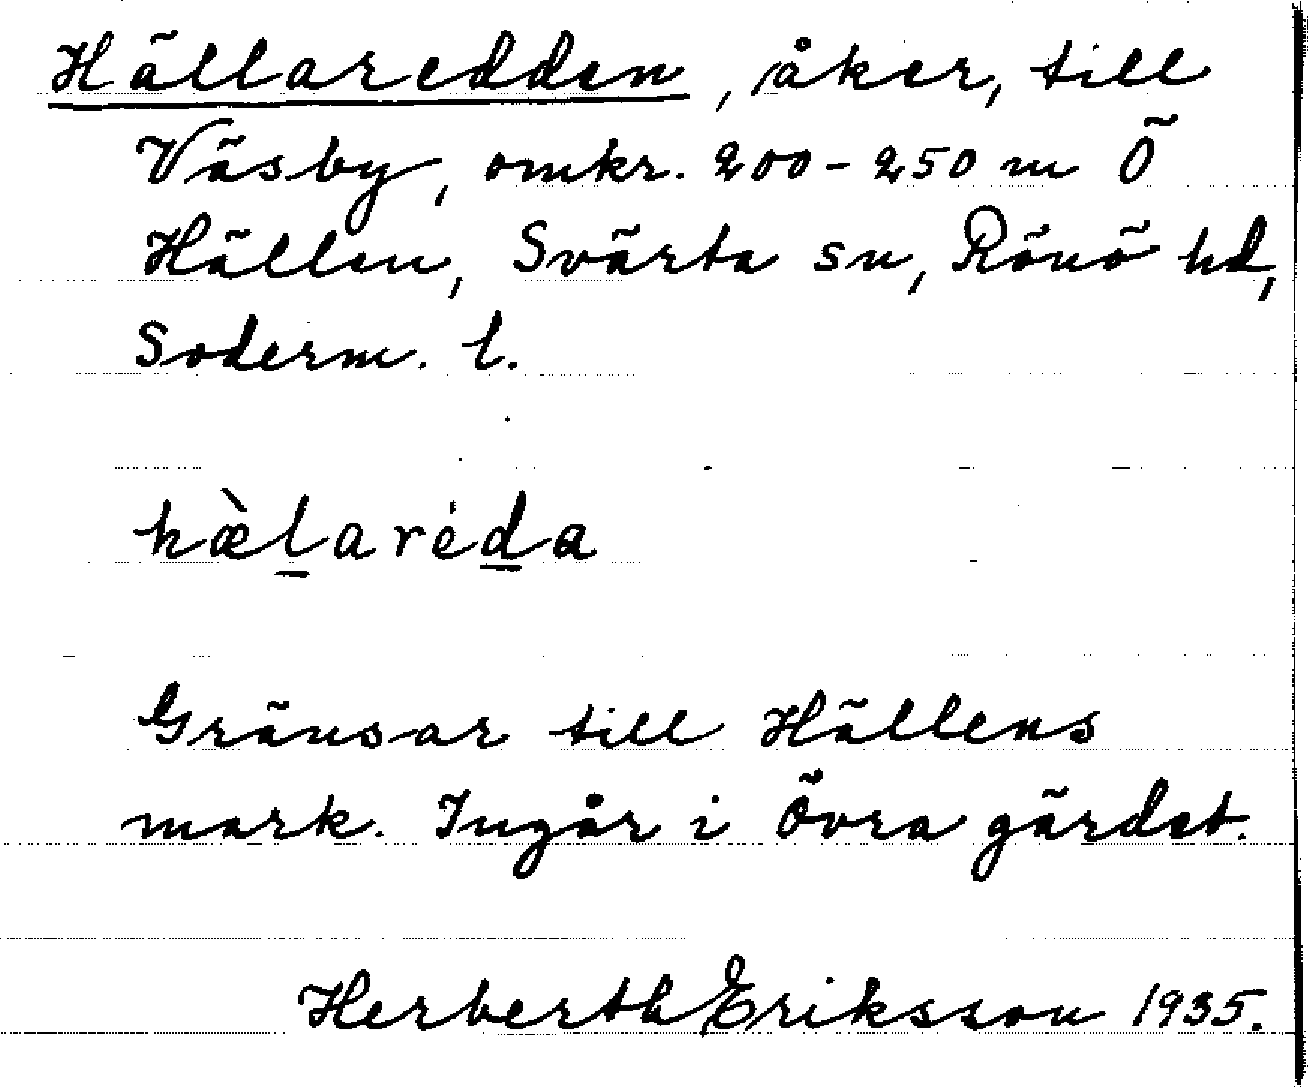 Hällaredden, åker, till
Väsby, omkr. 200-250 m Ö
Hällen, Svärta sn, Rönö hd,
Soderm. l.
hæ̀l̠arėd̠a
Gränsar till Hällens
mark. Ingår i Övra gärdet.
Herberth Eriksson 1935.